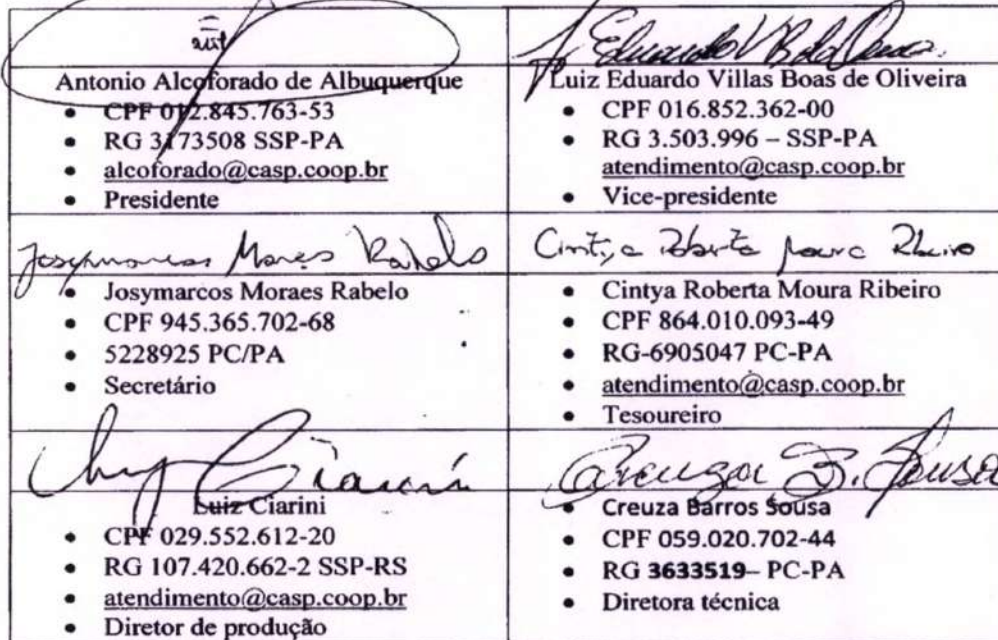 Eduardo V B de
Antonio Alcoforado de Albuquerque
• CPF 012.845.763-53
• RG 3173508 SSP-PA
• alcoforado@casp.coop.br
• Presidente
Luiz Eduardo Villas Boas de Oliveira
• CPF 016.852.362-00
• RG 3.503.996 – SSP-PA
atendimento@casp.coop.br
• Vice-presidente
Josymarcos Moraes Rabelo
• Josymarcos Moraes Rabelo
• CPF 945.365.702-68
• 5228925 PC/PA
• Secretário
Cintya Roberta Moura Ribeiro
• Cintya Roberta Moura Ribeiro
• CPF 864.010.093-49
• RG-6905047 PC-PA
• atendimento@casp.coop.br
• Tesoureiro
Luiz Ciarini
Luiz Ciarini
• CPF 029.552.612-20
• RG 107.420.662-2 SSP-RS
• atendimento@casp.coop.br
• Diretor de produção
Creuza B. Sousa
• Creuza Barros Sousa
• CPF 059.020.702-44
• RG 3633519– PC-PA
• Diretora técnica